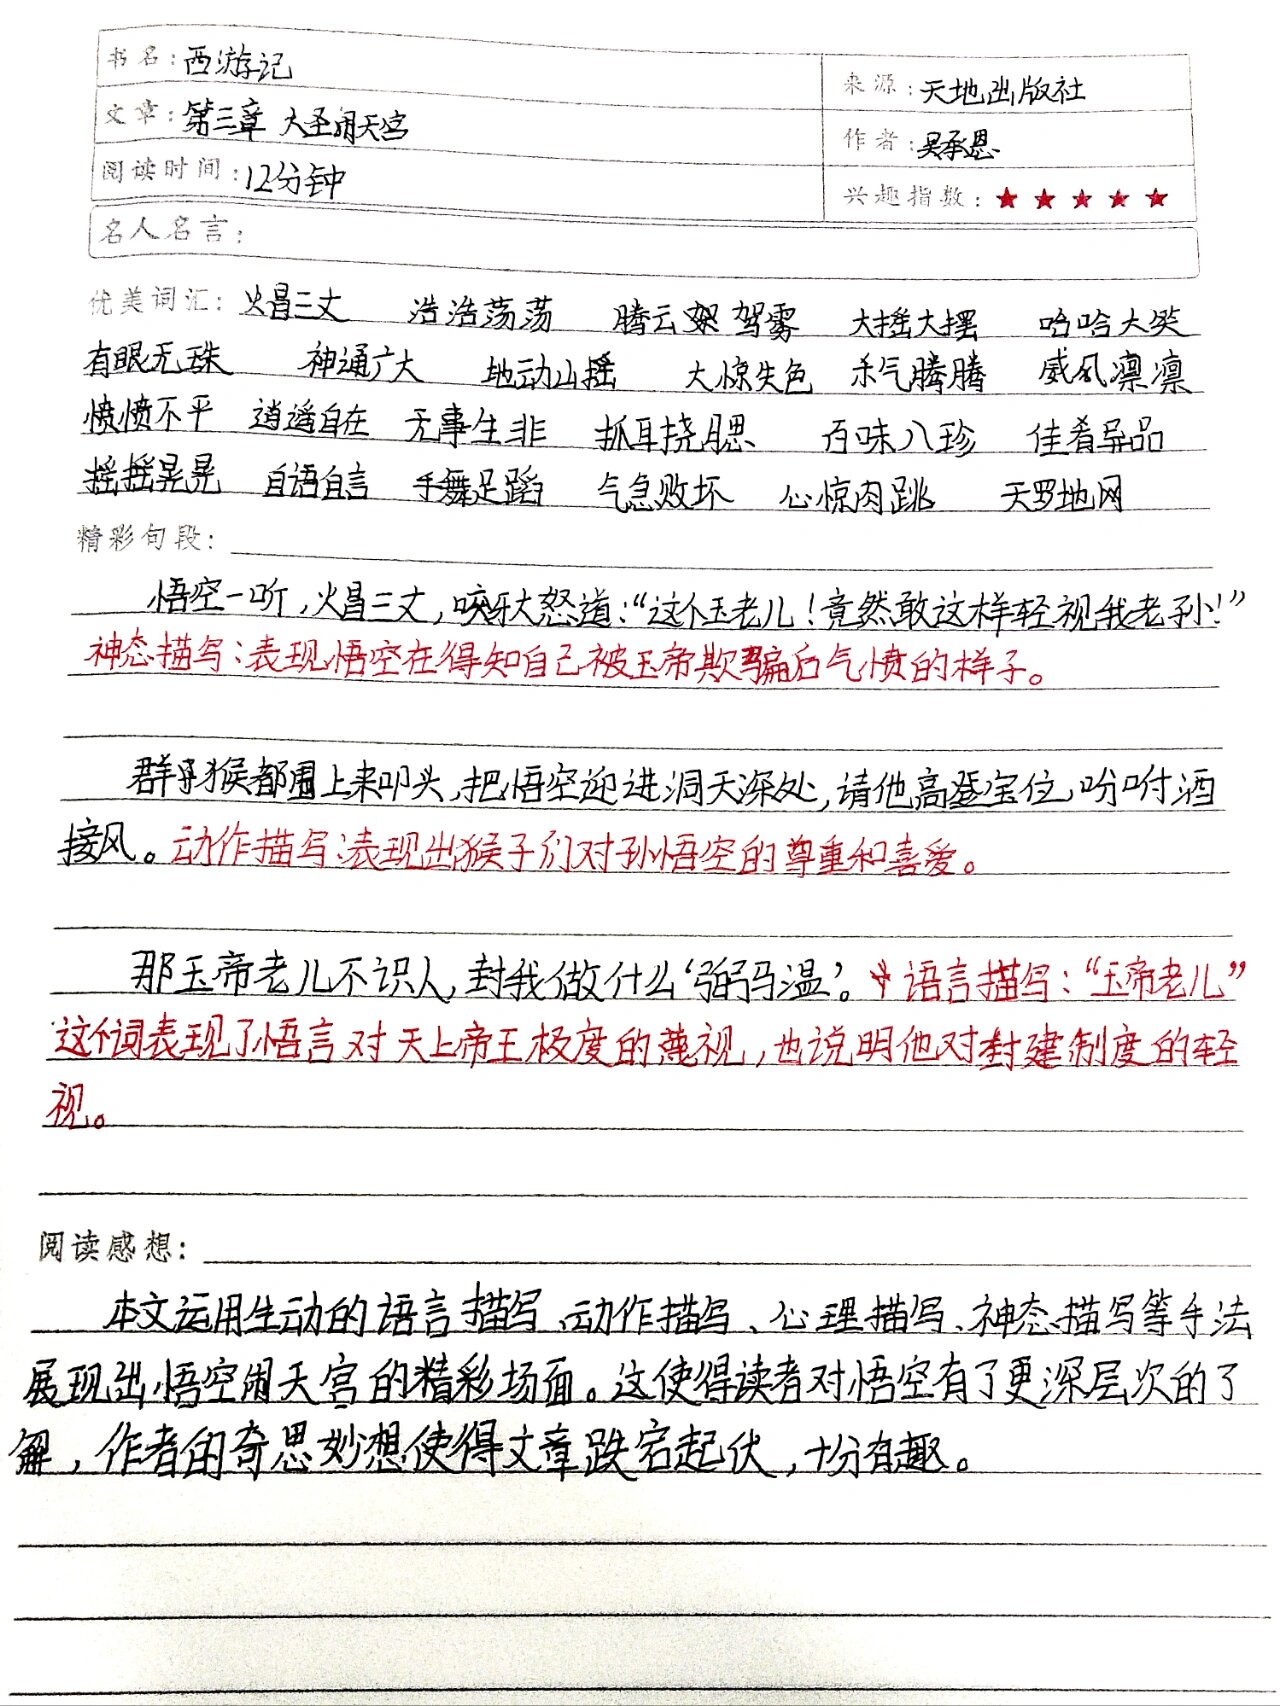 书名：西游记
来源：天地出版社
文章：第三章 大圣闹天宫
作者：吴承恩
阅读时间：12分钟
兴趣指数：★★★★★
名人名言：
优美词汇：火冒三丈 浩浩荡荡 腾云驾雾 大摇大摆 哈哈大笑
有眼无珠 神通广大 地动山摇 大惊失色 杀气腾腾 威风凛凛
愤愤不平 逍遥自在 无事生非 抓耳挠腮 百味八珍 佳肴异品
摇摇晃晃 自语自言 手舞足蹈 气急败坏 心惊肉跳 天罗地网
精彩句段：
悟空一听，火冒三丈，咬牙大怒道：“这个玉老儿！竟然敢这样轻视我老孙！”
神态描写：表现悟空在得知自己被玉帝欺骗后气愤的样子。
群猴都围上来叩头，把悟空迎进洞天深处，请他高登宝位，吩咐酒
接风。动作描写：表现出猴子们对孙悟空的尊重和喜爱。
那玉帝老儿不识人，封我做什么‘弼马温’。语言描写：“玉帝老儿”
这个词表现了悟言对天上帝王极度的蔑视，也说明他对封建制度的轻
视。
阅读感想：
本文运用生动的语言描写、动作描写、心理描写、神态描写等手法
展现出悟空闹天宫的精彩场面。这使得读者对悟空有了更深层次的了
解，作者的奇思妙想使得文章跌宕起伏，十分有趣。